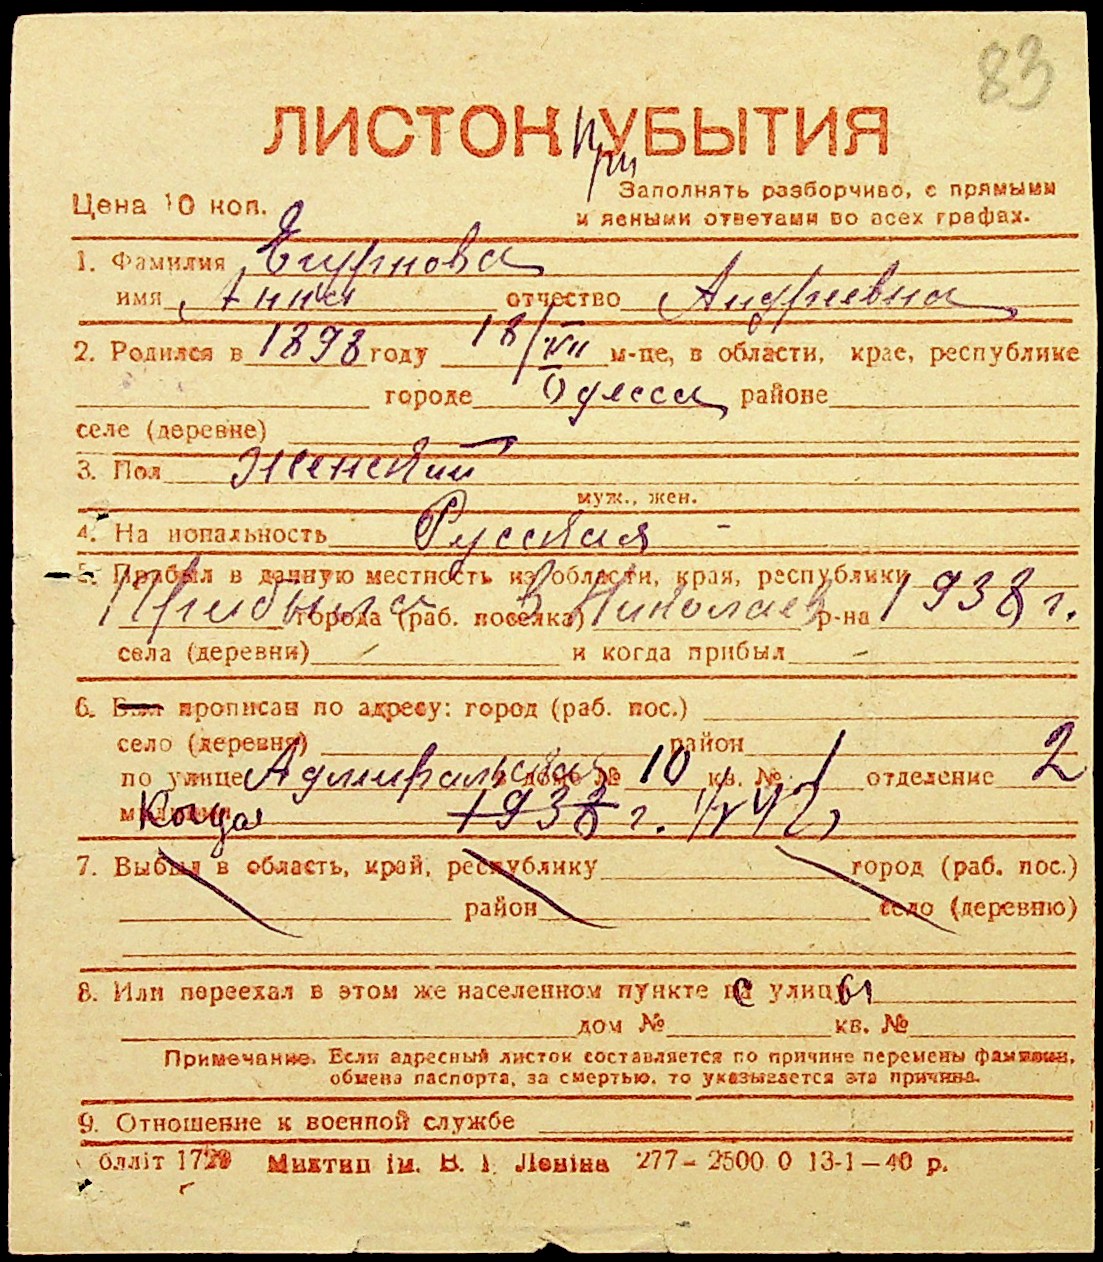 83
ЛИСТОК при УБЫТИЯ
Заполнять разборчиво, с прямыми
Цена 10 коп. и ясными ответами во всех графах.
1. Фамилия
имя Анна отчество Андреевна
2. Родился в 1898 году 18/VII м-це, в области, крае, республике
городе Одесса районе
селе (деревне)
3. Пол Женский
муж., жен.
4. На иопальность Русская -
5. Прибыл в данную местность из области, края, республики
Прибыла в Николаев 1938 г.
города (раб. поселка) р-на
села (деревни) и когда прибыл
6. Был прописан по адресу: город (раб. пос.)
село (деревня) район
по улице Адмиральская дом № 10 кв. № 1 отделение 2
милиции Когда 1938 г.
7. Выбыл в область, край, республику город (раб. пос.)
район село (деревню)
8. Или переехал в этом же населенном пункте с улицы
дом № кв. №
Примечание. Если адресный листок составляется по причине перемены фамилии,
обмена паспорта, за смертью, то указывается эта причина.
9. Отношение к военной службе
блліт Миктип ім. В. І. Леніна 277-2500 0 13-1-40 р.